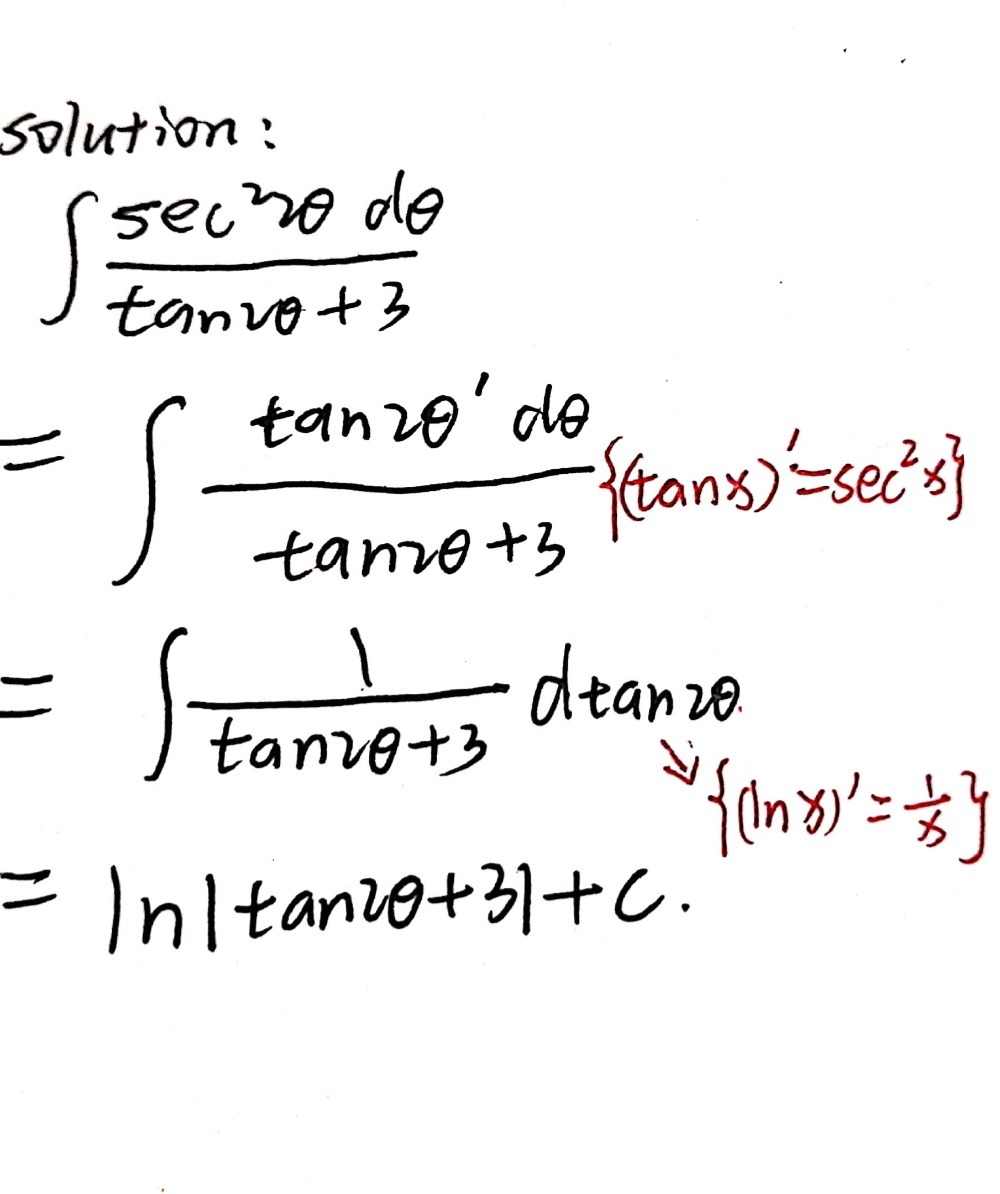 solution:
∫ sec²2θ dθ / tan2θ+3
= ∫ tan2θ' dθ / tan2θ+3 {(tanx)'=sec²x}
= ∫ 1 / tan2θ+3 dtan2θ.
↘ {(lnx)'= 1/x}
= ln|tan2θ+3|+C.